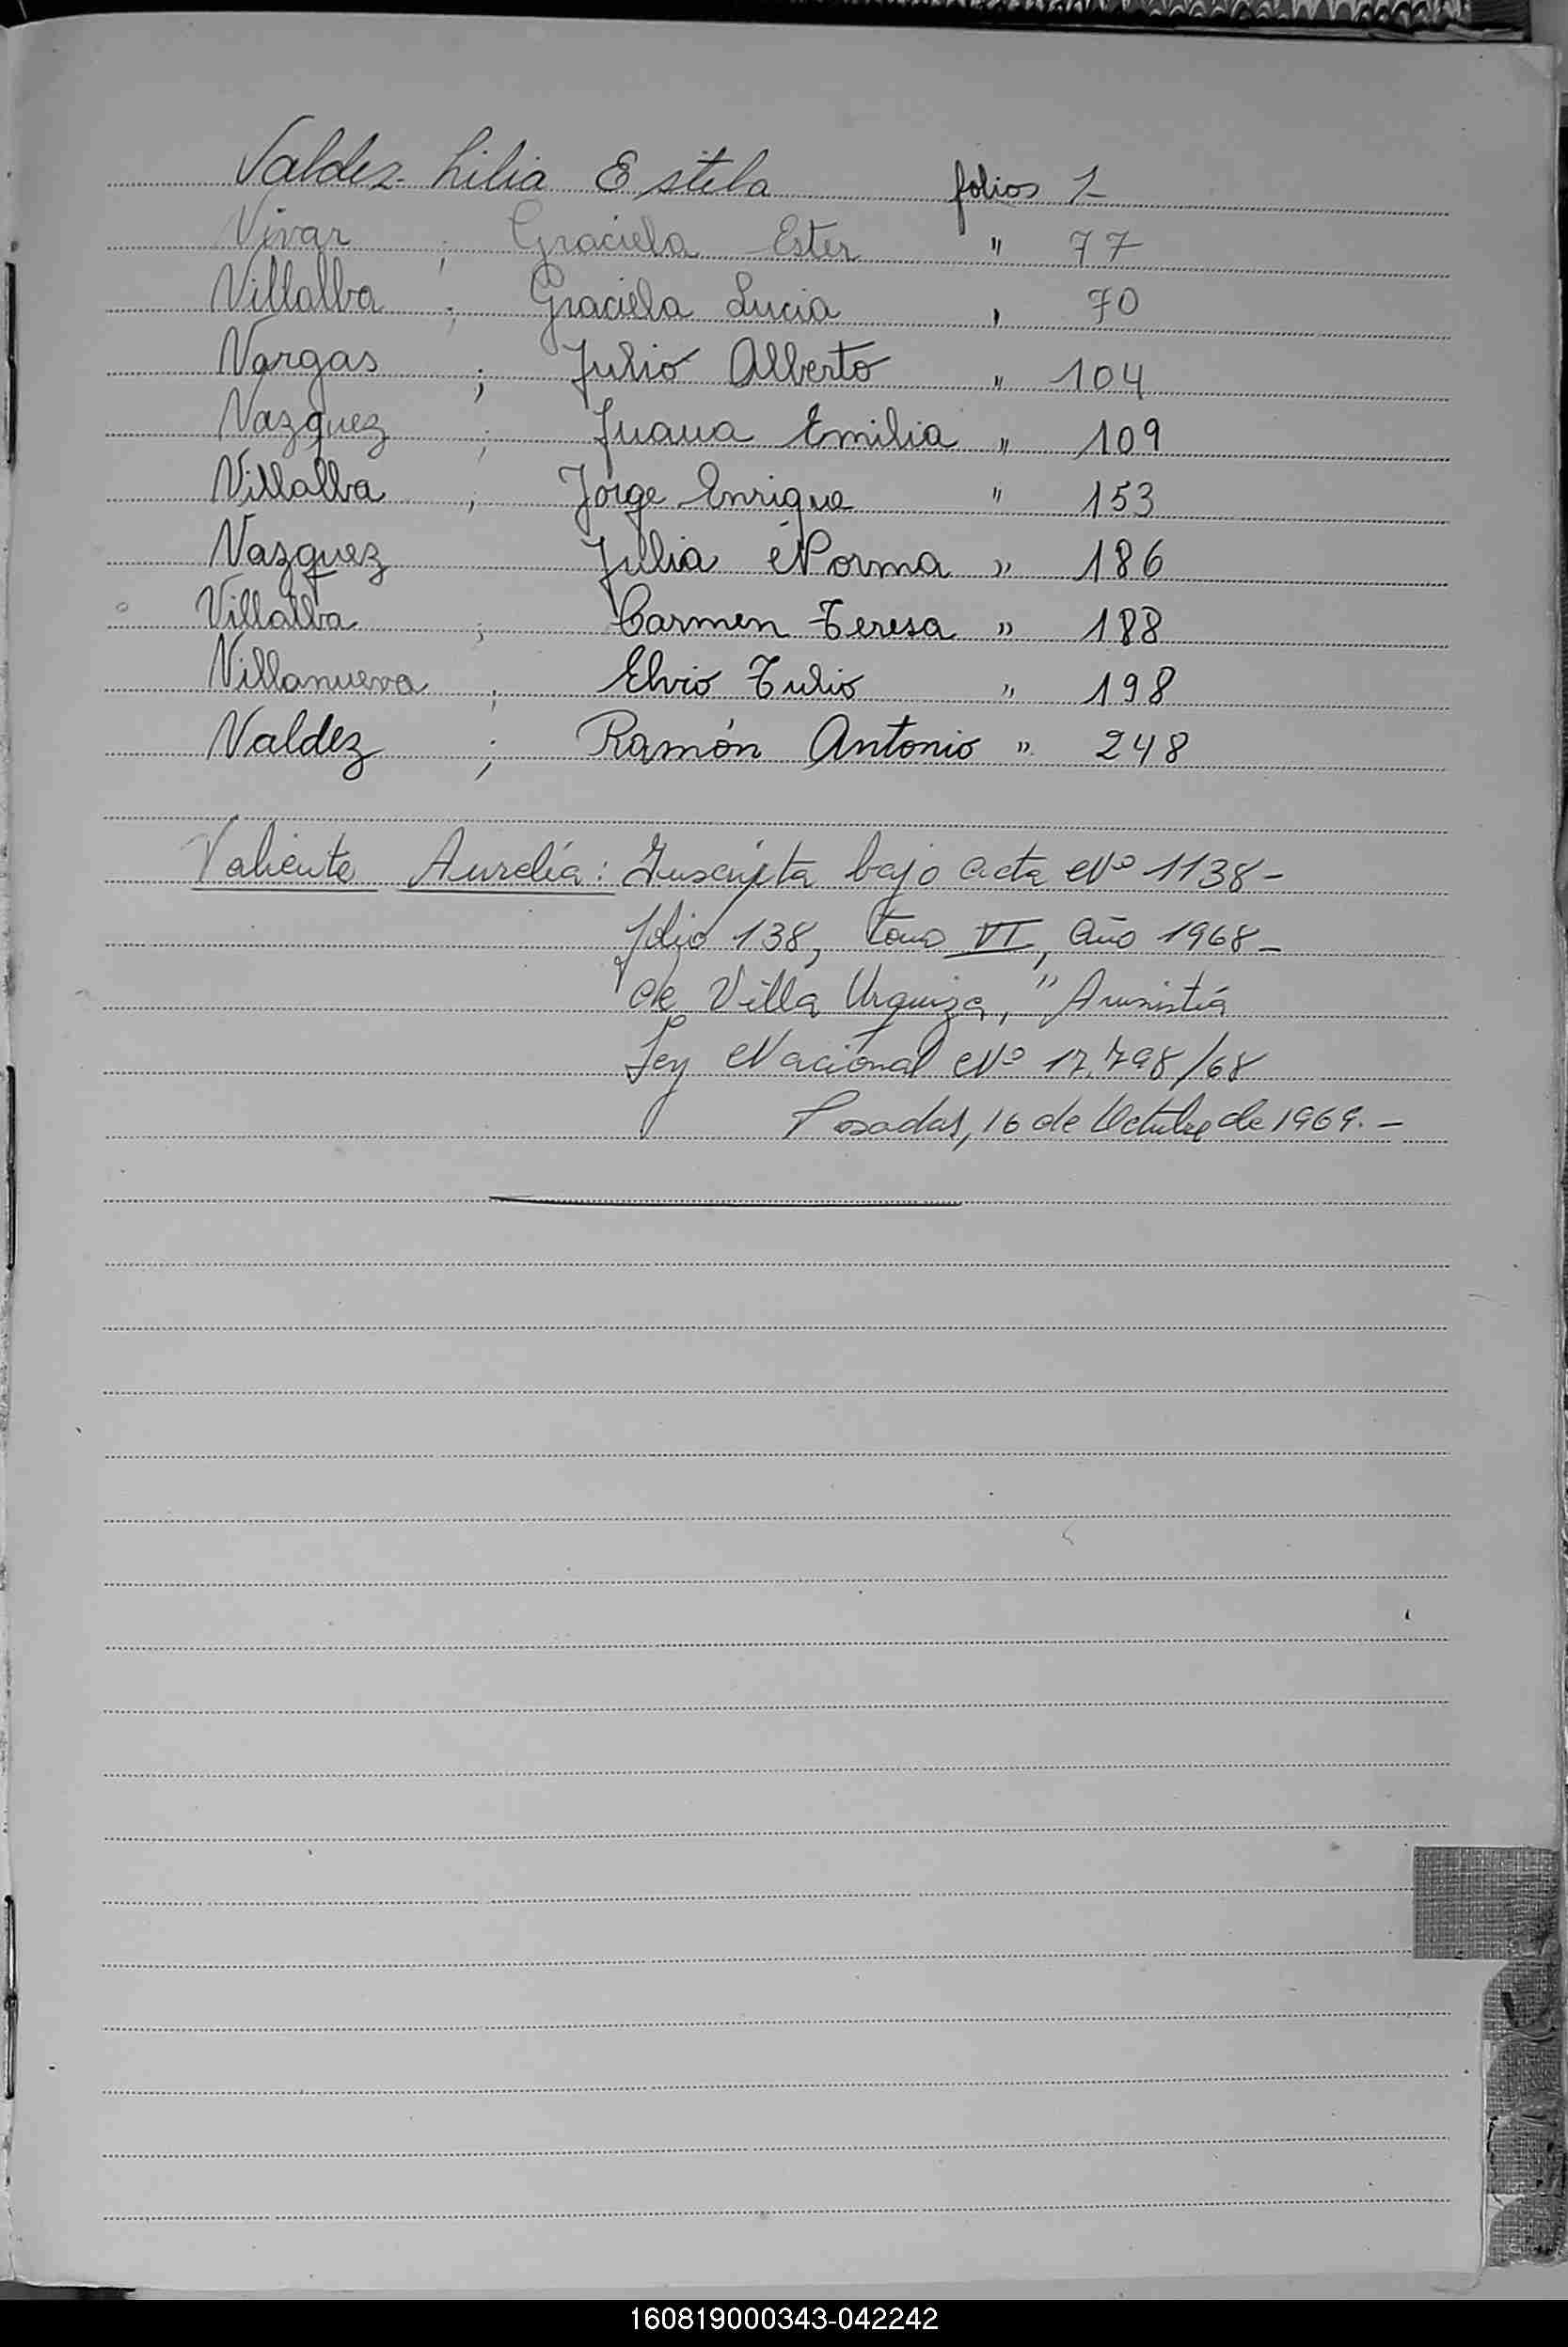 Valdez Lilia Estela folios 1-
Vivar ; Graciela Ester " 77
Villalba ; Graciela Lucia " 70
Vargas ; Julio Alberto " 104
Vazquez ; Juana Emilia " 109
Villalba ; Jorge Enrique " 153
Vazquez Julia Norma " 186
Villalba ; Carmen Teresa " 188
Villanueva ; Elvio Tulio " 198
Valdez ; Ramón Antonio " 248
Valiente Aurelia: Inscripta bajo acta Nº 1138-
folio 138, tomo VI, año 1968-
de Villa Urquiza, "Amnistía
Ley Nacional Nº 17.798/68
Posadas, 16 de Octubre de 1969.-
160819000343-042242